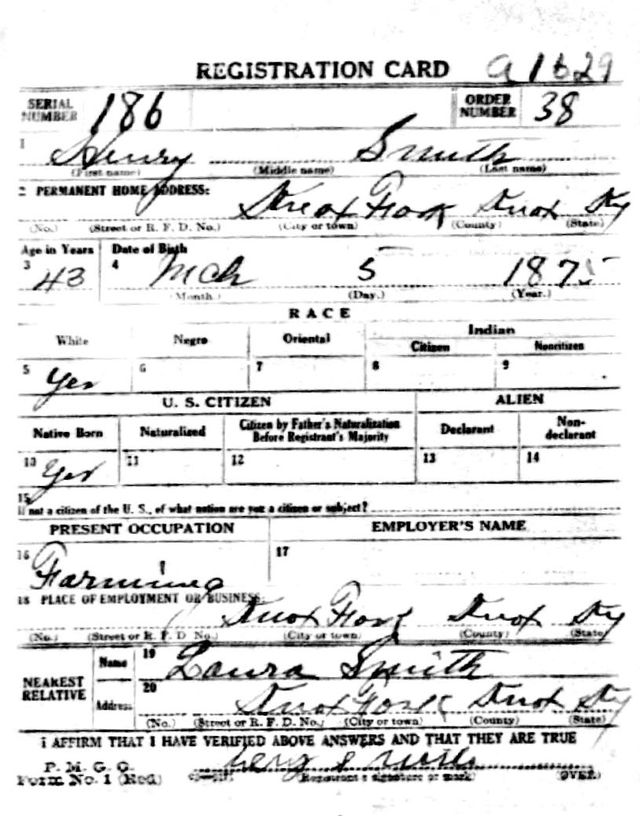 REGISTRATION CARD a 1629
SERIAL NUMBER 186 ORDER NUMBER 38
1 Henry Smith
(First name) (Middle name) (Last name)
2 PERMANENT HOME ADDRESS:
Knox Fork Knox Ky
(No.) (Street or R. F. D. No.) (City or town) (County) (State)
Age in Years Date of Birth
3 43 4 Mch 5 1875
(Month.) (Day.) (Year.)
RACE
White Negro Oriental Indian
Citizen Noncitizen
5 Yes 6 7 8 9
U. S. CITIZEN ALIEN
Native Born Naturalized Citizen by Father's Naturalization Before Registrant's Majority Declarant Non-declarant
10 Yes 11 12 13 14
15
If not a citizen of the U. S., of what nation are you a citizen or subject?
PRESENT OCCUPATION EMPLOYER'S NAME
16 Farming 17
18 PLACE OF EMPLOYMENT OR BUSINESS:
Knox Fork Knox Ky
(No.) (Street or R. F. D. No.) (City or town) (County) (State)
NEAREST RELATIVE Name 19 Laura Smith
Address 20 Knox Fork Knox Ky
(No.) (Street or R. F. D. No.) (City or town) (County) (State)
I AFFIRM THAT I HAVE VERIFIED ABOVE ANSWERS AND THAT THEY ARE TRUE
P. M. G. O.
Form No. 1 (Red) (Registrant's signature or mark) (OVER)